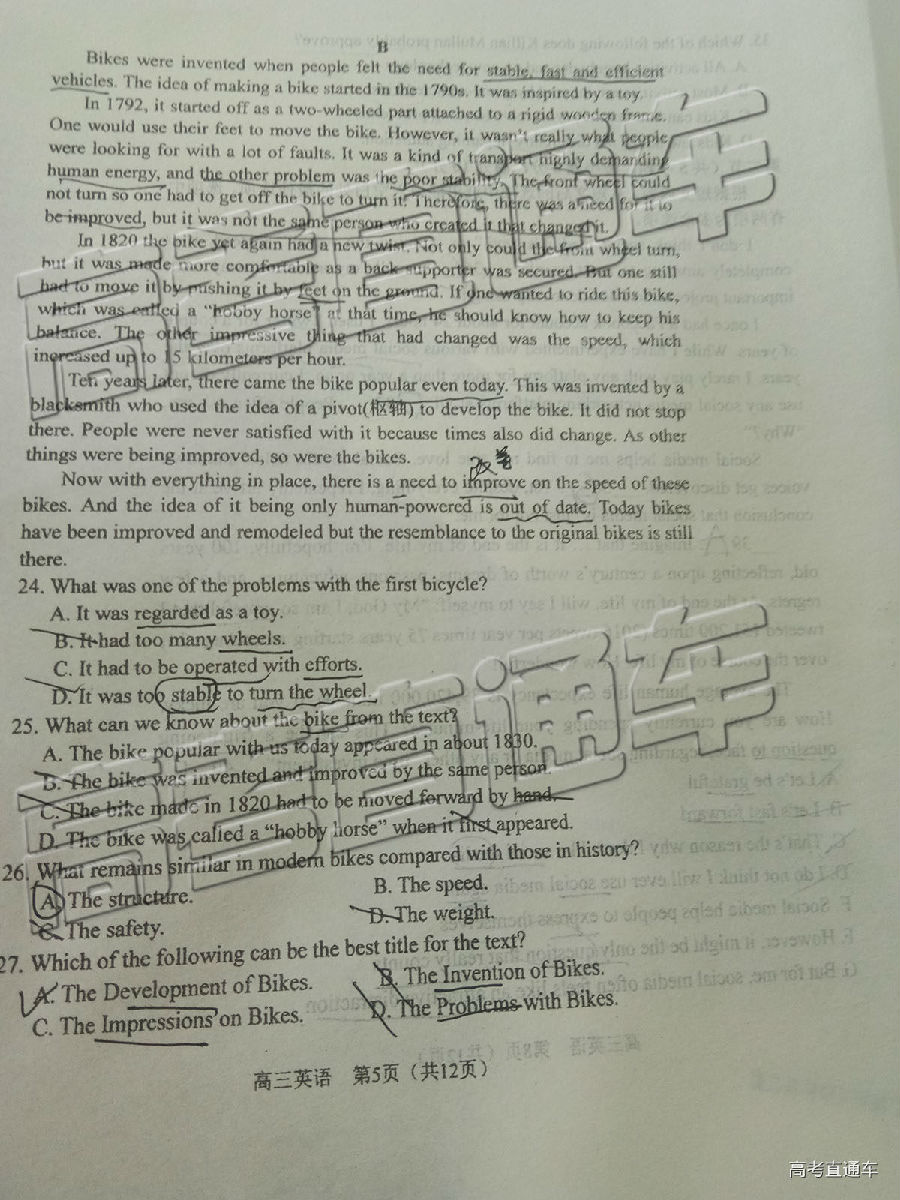 B
Bikes were invented when people felt the need for stable, fast and efficient
vehicles. The idea of making a bike started in the 1790s. It was inspired by a toy.
In 1792, it started off as a two-wheeled part attached to a rigid wooden frame.
One would use their feet to move the bike. However, it wasn't really what people
were looking for with a lot of faults. It was a kind of transport highly demanding
human energy, and the other problem was the poor stability. The front wheel could
not turn so one had to get off the bike to turn it! Therefore, there was a need for it to
be improved, but it was not the same person who created it that changed it.
In 1820 the bike yet again had a new twist. Not only could the front wheel turn,
but it was made more comfortable as a back supporter was secured. But one still
had to move it by pushing it by feet on the ground. If one wanted to ride this bike,
which was called a "hobby horse" at that time, he should know how to keep his
balance. The other impressive thing that had changed was the speed, which
increased up to 15 kilometers per hour.
Ten years later, there came the bike popular even today. This was invented by a
blacksmith who used the idea of a pivot(枢轴) to develop the bike. It did not stop
there. People were never satisfied with it because times also did change. As other
things were being improved, so were the bikes.
改善
Now with everything in place, there is a need to improve on the speed of these
bikes. And the idea of it being only human-powered is out of date. Today bikes
have been improved and remodeled but the resemblance to the original bikes is still
there.
24. What was one of the problems with the first bicycle?
A. It was regarded as a toy.
B. It had too many wheels.
C. It had to be operated with efforts.
D. It was too stable to turn the wheel.
25. What can we know about the bike from the text?
A. The bike popular with us today appeared in about 1830.
B. The bike was invented and improved by the same person.
C. The bike made in 1820 had to be moved forward by hand.
D. The bike was called a "hobby horse" when it first appeared.
26. What remains similar in modern bikes compared with those in history?
A. The structure. B. The speed.
C. The safety. D. The weight.
27. Which of the following can be the best title for the text?
A. The Development of Bikes. B. The Invention of Bikes.
C. The Impressions on Bikes. D. The Problems with Bikes.
高三英语 第5页（共12页）
高考直通车
高考直通车
高考直通车